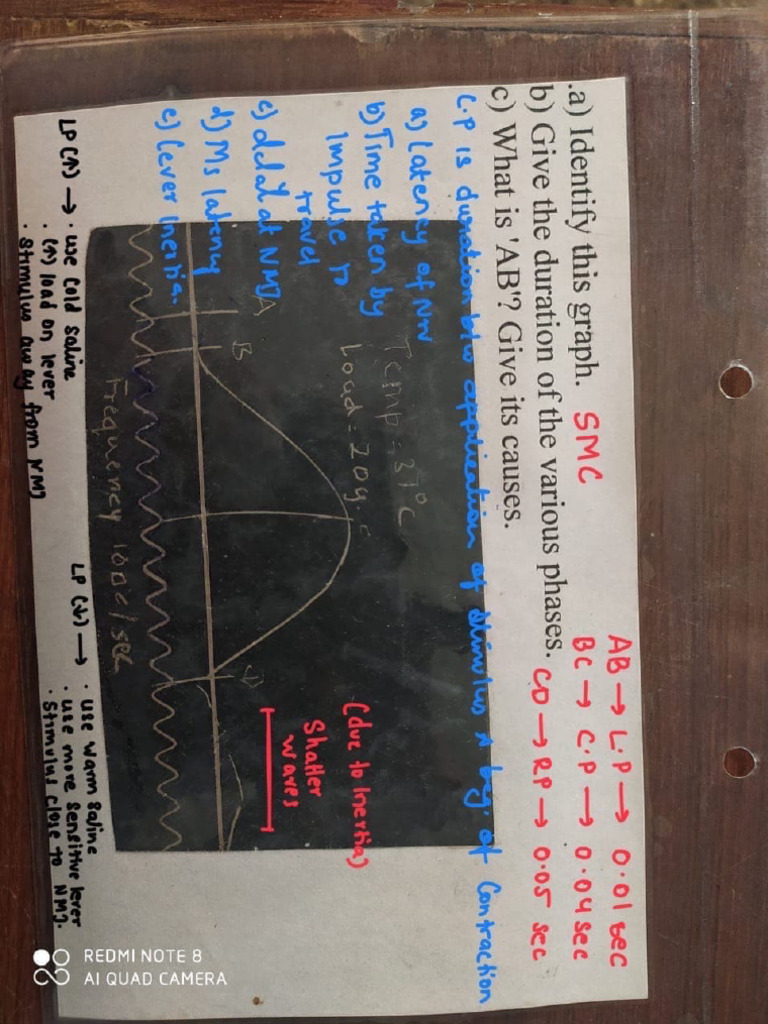 .a) Identify this graph. SMC
b) Give the duration of the various phases.
c) What is 'AB'? Give its causes.
AB → L.P → 0.01 sec
BC → C.P → 0.04 sec
CD → RP → 0.05 sec
L.P is duration b/w application of stimulus & beg. of Contraction
a) latency of Nrv
b) Time taken by
impulse to
travel
c) delay at NMJ
d) Ms latency
e) lever inertia.
Temp: 37°C
Load = 20g.
A
B
C
D
(due to Inertia)
Shatter
waves
Frequency 100c/sec
LP (↑) → · use cold saline
· (↑) load on lever
· Stimulus away from NMJ
LP (↓) → · use warm saline
· use more sensitive lever
· Stimulus close to NMJ.
REDMI NOTE 8
AI QUAD CAMERA